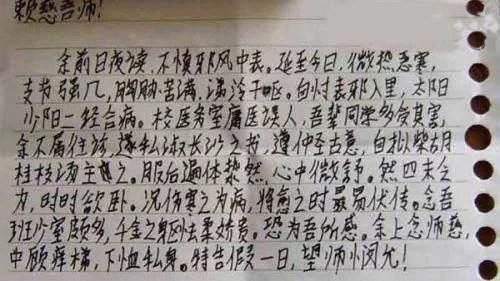 敕慈吾师!
余前日夜读,不慎邪风中表。延至今日,微热恶寒,
支节强几,胸胁苦满,涕泠干呕。自忖表邪入里,太阳
少阳二经合病。校医务室庸医误人,吾辈同学多受其害,
余不屑往诊,遂私淑长沙之书,遵仲圣古意,自拟柴胡
桂枝汤主之。服后遍体漐然,心中微舒。然四末乏
力,时时欲卧。况伤寒之为病,将愈之时最易伏传。念吾
班少室颇多,千金之身固怯柔娇贵。恐为吾所感。余上念师慈,
中顾痒梯,下恤私身。特告假一日,望师悯允!